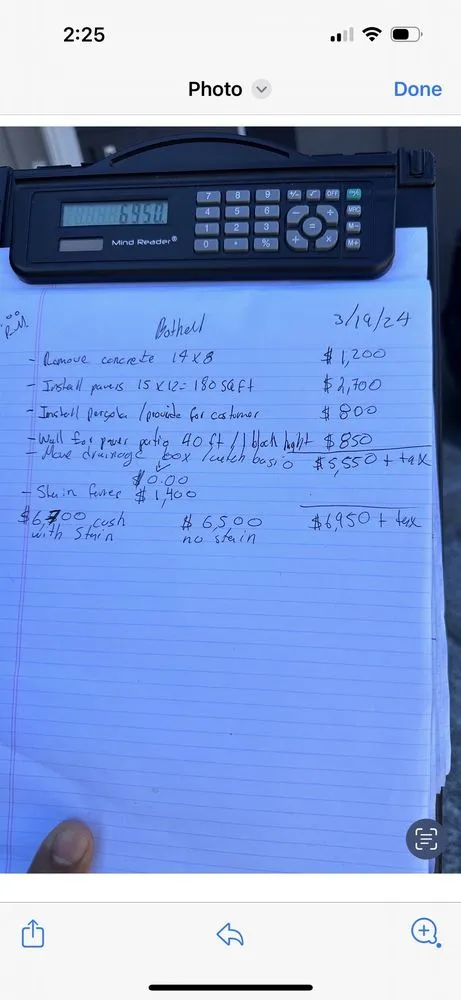 2:25
Photo
Done
6950.
Mind Reader®
7 8 9 +/- √ OFF
4 5 6 − + MRC
1 2 3 = M−
0 • % ÷ × M+
Bothell 3/19/24
- Remove concrete 14 x 8 $1,200
- Install pavers 15 x 12 = 180 sq ft $2,700
- Install pergola / provide for customer $800
- Wall for paver 40 ft / 1 block $850
- Move drainage box / catch basin $5,550 + tax
$0.00
- Stain $1,400
$6,700 cash $6,500 $6,950 + tax
with stain no stain